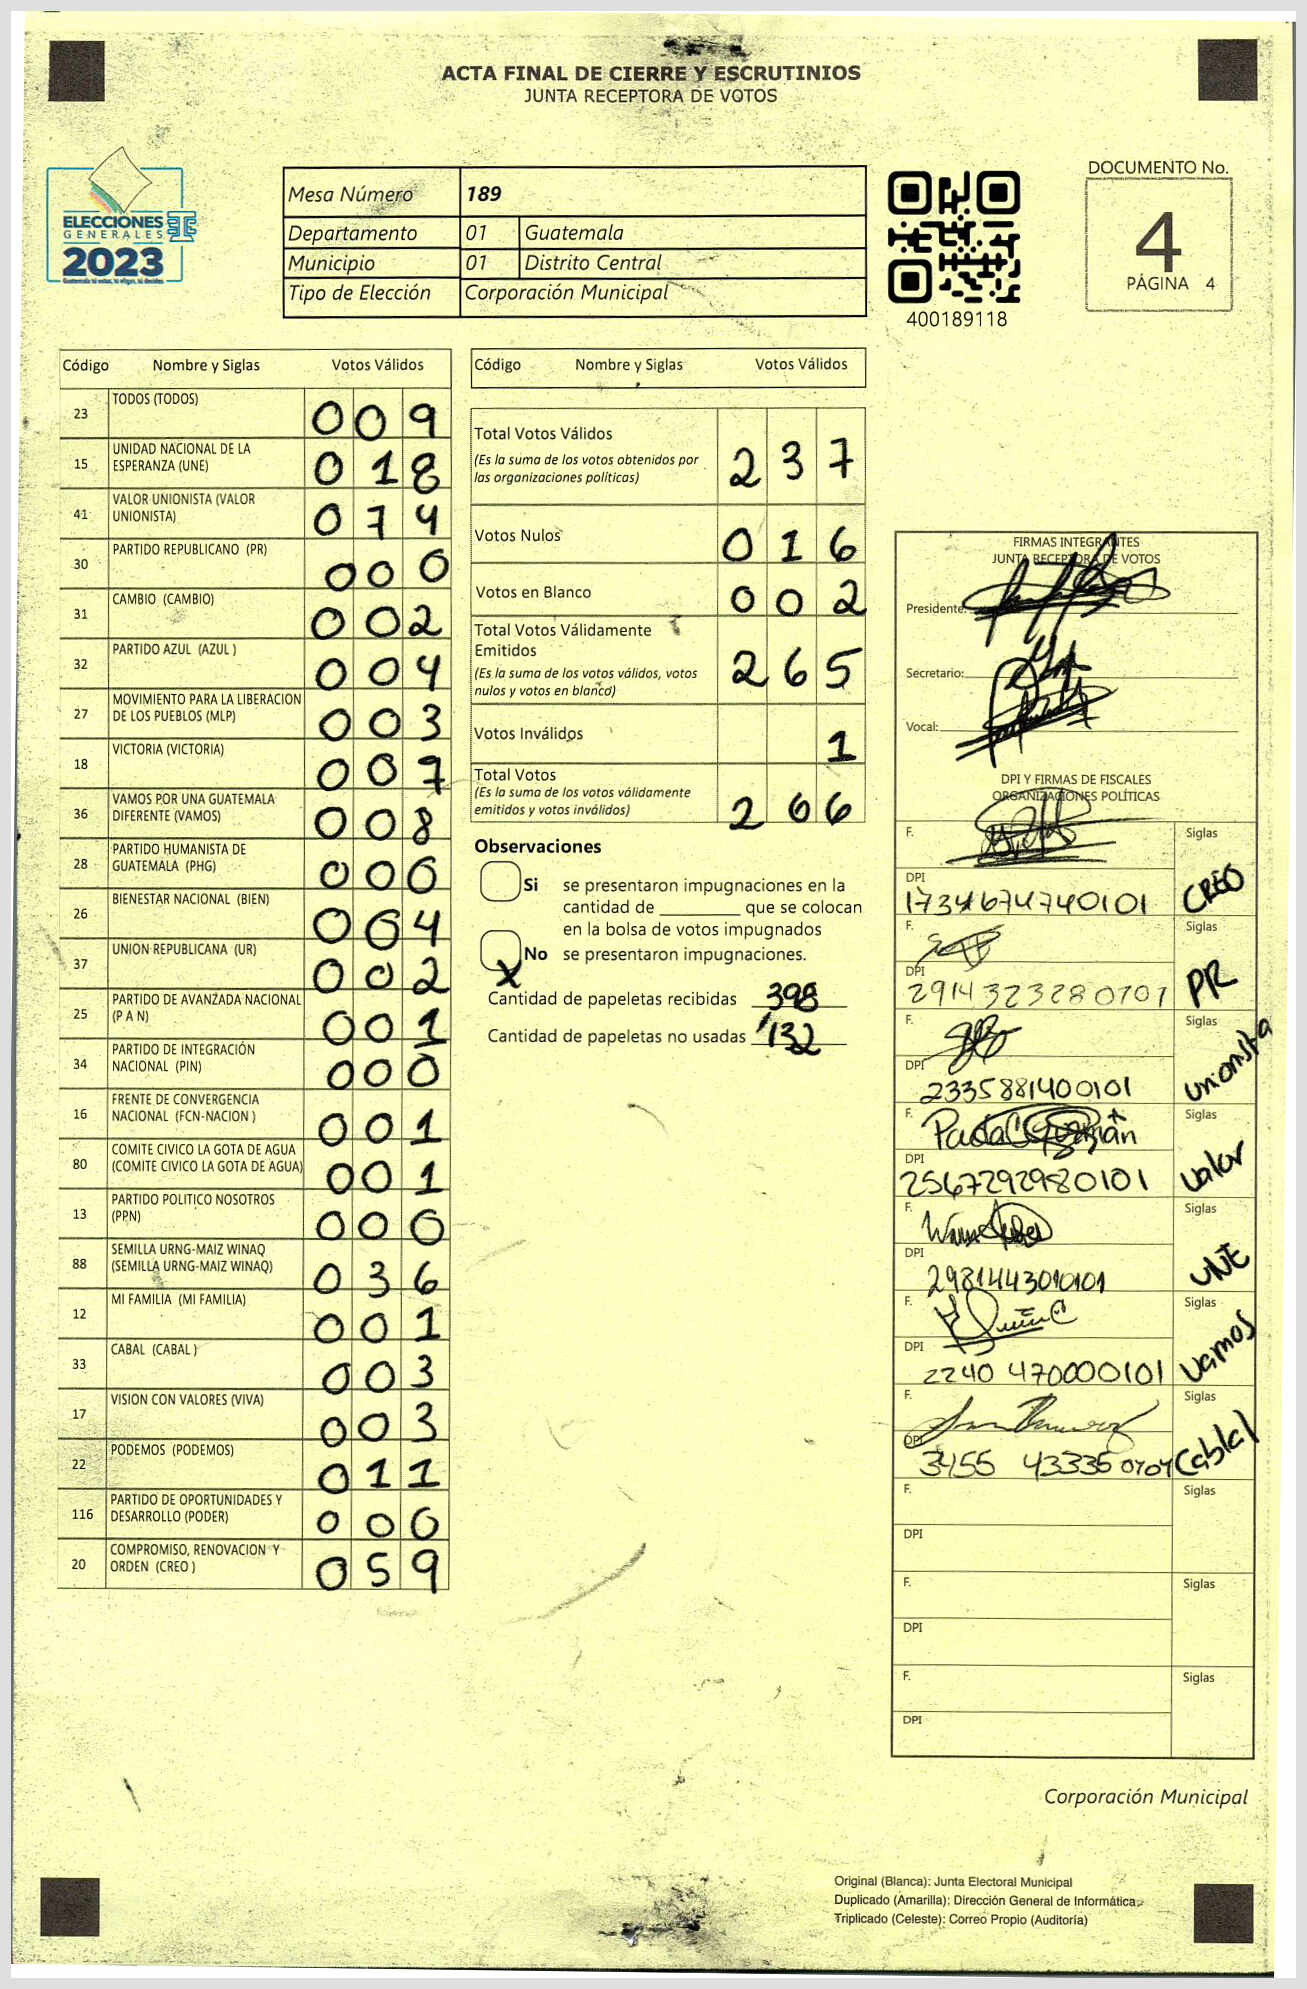 ACTA FINAL DE CIERRE Y ESCRUTINIOS
JUNTA RECEPTORA DE VOTOS
ELECCIONES
GENERALES
2023
Mesa Número 189
Departamento 01 Guatemala
Municipio 01 Distrito Central
Tipo de Elección Corporación Municipal
400189118
DOCUMENTO No.
4
PÁGINA 4
Código Nombre y Siglas Votos Válidos
23 TODOS (TODOS) 009
15 UNIDAD NACIONAL DE LA
ESPERANZA (UNE) 018
41 VALOR UNIONISTA (VALOR
UNIONISTA) 074
30 PARTIDO REPUBLICANO (PR) 000
31 CAMBIO (CAMBIO) 002
32 PARTIDO AZUL (AZUL ) 004
27 MOVIMIENTO PARA LA LIBERACION
DE LOS PUEBLOS (MLP) 003
18 VICTORIA (VICTORIA) 007
36 VAMOS POR UNA GUATEMALA
DIFERENTE (VAMOS) 008
28 PARTIDO HUMANISTA DE
GUATEMALA (PHG) 000
26 BIENESTAR NACIONAL (BIEN) 004
37 UNION REPUBLICANA (UR) 002
25 PARTIDO DE AVANZADA NACIONAL
(P A N) 001
34 PARTIDO DE INTEGRACIÓN
NACIONAL (PIN) 000
16 FRENTE DE CONVERGENCIA
NACIONAL (FCN-NACION ) 001
80 COMITE CIVICO LA GOTA DE AGUA
(COMITE CIVICO LA GOTA DE AGUA) 001
13 PARTIDO POLITICO NOSOTROS
(PPN) 000
88 SEMILLA URNG-MAIZ WINAQ
(SEMILLA URNG-MAIZ WINAQ) 036
12 MI FAMILIA (MI FAMILIA) 001
33 CABAL (CABAL ) 003
17 VISION CON VALORES (VIVA) 003
22 PODEMOS (PODEMOS) 011
116 PARTIDO DE OPORTUNIDADES Y
DESARROLLO (PODER) 000
20 COMPROMISO, RENOVACION Y
ORDEN (CREO ) 059
Código Nombre y Siglas Votos Válidos
Total Votos Válidos 237
(Es la suma de los votos obtenidos por
las organizaciones políticas)
Votos Nulos 016
Votos en Blanco 002
Total Votos Válidamente
Emitidos 265
(Es la suma de los votos válidos, votos
nulos y votos en blanco)
Votos Inválidos 1
Total Votos 266
(Es la suma de los votos válidamente
emitidos y votos inválidos)
Observaciones
Si se presentaron impugnaciones en la
cantidad de ________ que se colocan
en la bolsa de votos impugnados
X No se presentaron impugnaciones.
Cantidad de papeletas recibidas 398
Cantidad de papeletas no usadas 132
FIRMAS INTEGRANTES
JUNTA RECEPTORA DE VOTOS
Presidente:
Secretario:
Vocal:
DPI Y FIRMAS DE FISCALES
ORGANIZACIONES POLÍTICAS
F. Siglas
DPI
1734674740101 CREO
F. Siglas
DPI
2914323280101 PR
F. Siglas
DPI
2335881400101 unionista
F. Siglas
DPI
2567292980101 valor
F. Siglas
DPI
2981443010101 UNE
F. Siglas
DPI
2240 470000101 vamos
F. Siglas
DPI
3455 43335 0101 Cabal
F. Siglas
DPI
F. Siglas
DPI
F. Siglas
DPI
Corporación Municipal
Original (Blanca): Junta Electoral Municipal
Duplicado (Amarilla): Dirección General de Informática
Triplicado (Celeste): Correo Propio (Auditoría)